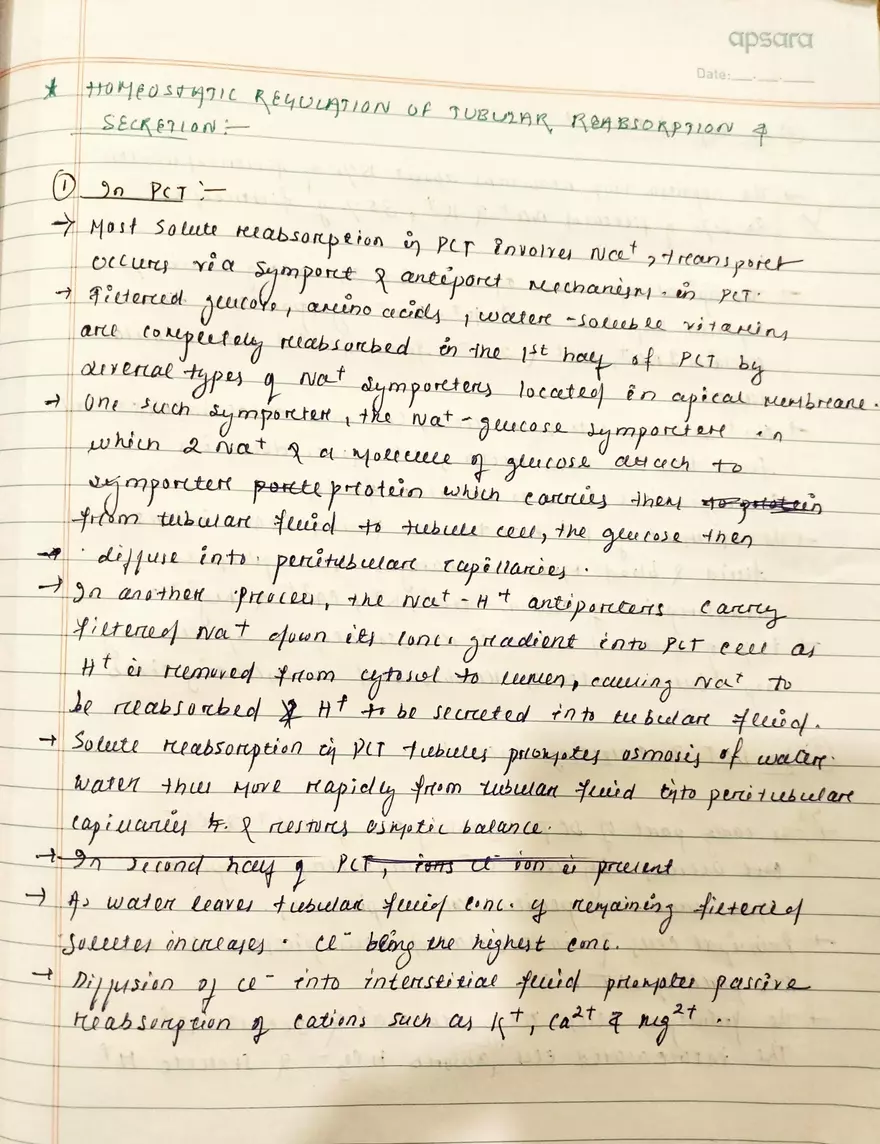 apsara
Date:__.__.__
* HOMEOSTATIC REGULATION OF TUBULAR REABSORPTION &
SECRETION:-
① In PCT :-
→ Most solute reabsorption in PCT involves Na⁺, transport
occurs via symport & antiport mechanisms. in PCT.
→ Filtered glucose, amino acids, water-soluble vitamins
are completely reabsorbed in the 1st half of PCT by
several types of Na⁺ symporters located in apical membrane.
→ One such symporter, the Na⁺-glucose symporters in
which 2 Na⁺ & a molecule of glucose attach to
symporter porte protein which carries them to protein
from tubular fluid to tubule cell, the glucose then
→ diffuse into peritubular capillaries.
→ In another process, the Na⁺-H⁺ antiporters carry
filtered Na⁺ down its conc. gradient into PCT cell as
H⁺ is removed from cytosol to lumen, causing Na⁺ to
be reabsorbed & H⁺ to be secreted into tubular fluid.
→ Solute reabsorption in PCT tubules promotes osmosis of water.
Water thus move rapidly from tubular fluid into peritubular
capillaries & restores osmotic balance.
→ In second half of PCT, ions Cl⁻ ion is present
→ As water leaves tubular fluid conc. of remaining filtered
solutes increases. Cl⁻ being the highest conc.
→ Diffusion of Cl⁻ into interstitial fluid promotes passive
reabsorption of cations such as K⁺, Ca²⁺ & Mg²⁺ ..